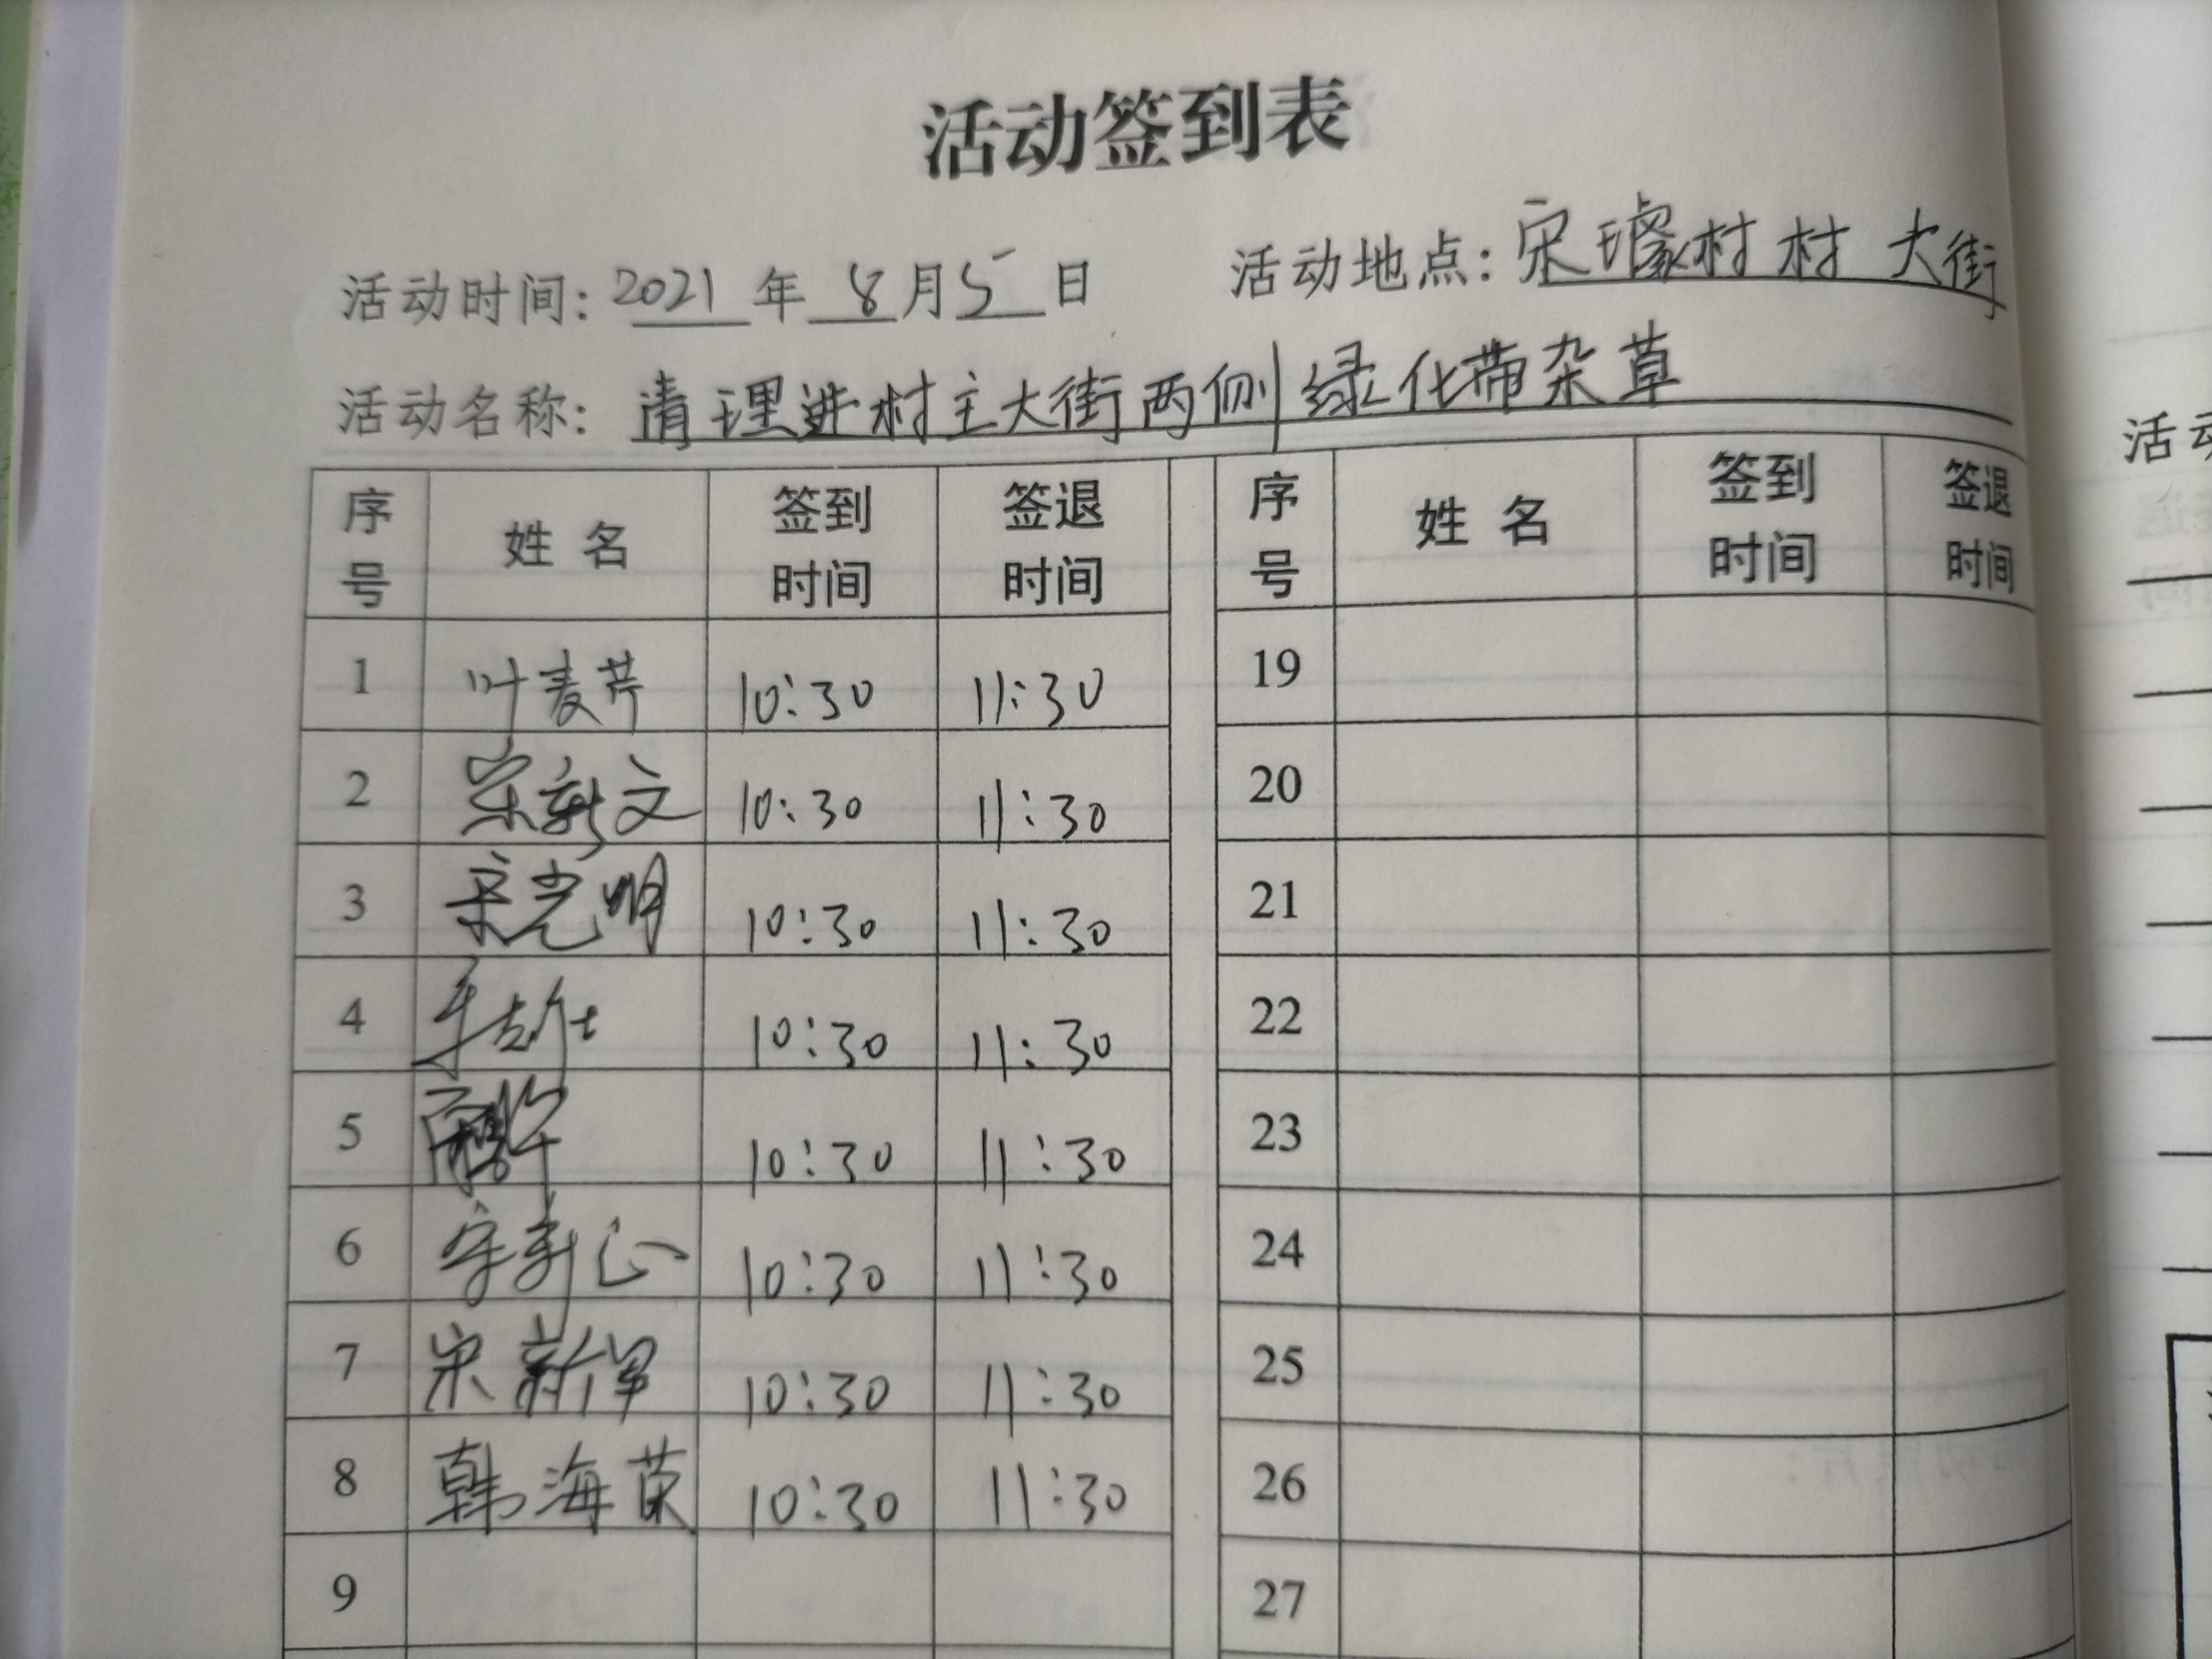 活动签到表
活动时间: 2021 年 8 月 5 日 活动地点: 宋璩村村 大街
活动名称: 清理进村主大街两侧绿化带杂草
序号 姓名 签到时间 签退时间 序号 姓名 签到时间 签退时间
1 叶麦芹 10:30 11:30 19
2 宋新文 10:30 11:30 20
3 宋光明 10:30 11:30 21
4 10:30 11:30 22
5 10:30 11:30 23
6 10:30 11:30 24
7 宋新军 10:30 11:30 25
8 韩海英 10:30 11:30 26
9 27
活动